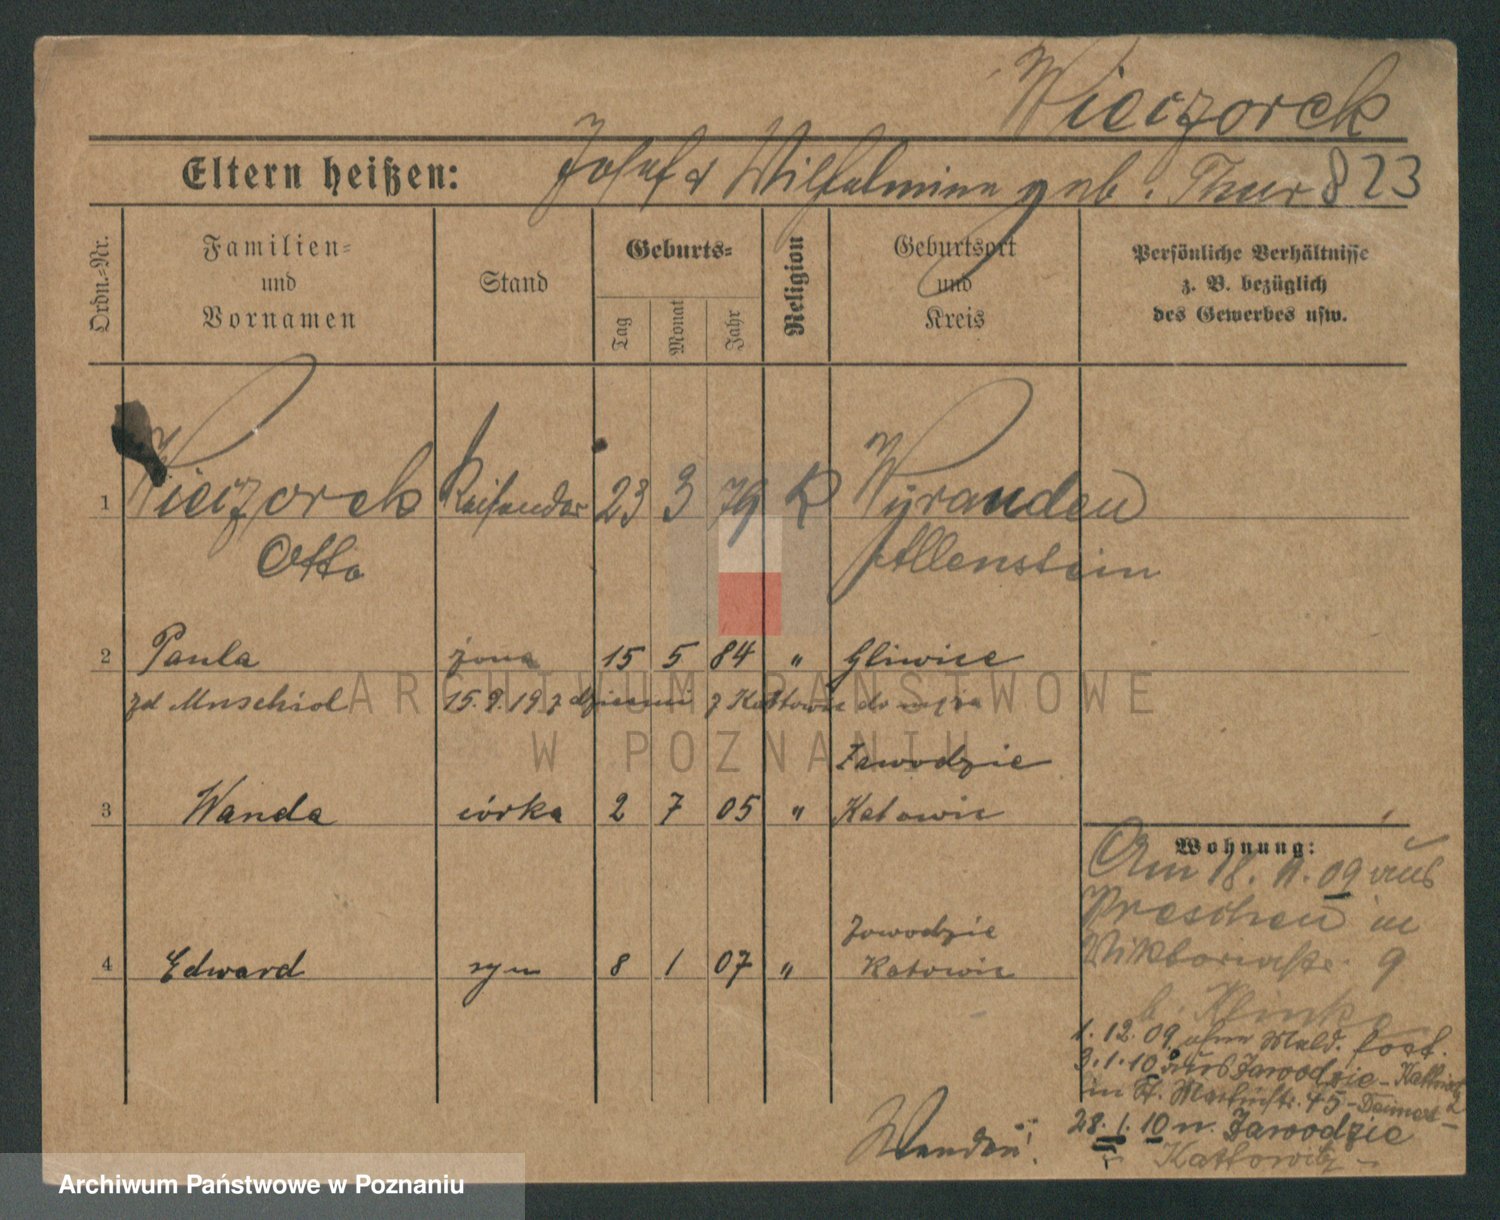 Wieczorek
Eltern heißen: Josef & Wilhelmine geb. Thur 823
Ordn.=Nr.
Familien=
und
Vornamen
Stand
Geburts=
Tag
Monat
Jahr
Religion
Geburtsort
und
Kreis
Persönliche Verhältnisse
z. B. bezüglich
des Gewerbes usw.
1 Wieczorek Reisender 23 3 79 K Wyranden
Otto Allenstein
2 Paula żona 15 5 84 " Gliwice
zd Muschiol 15.9.19 z dziećmi z Katowic do męża
Zawodzie
3 Wanda córka 2 7 05 " Katowic
Zawodzie
4 Edward syn 8 1 07 " Katowic
Wohnung:
Am 18. 11. 09 aus
Preschen in
Viktoriastr. 9
b. Klinke
1. 12. 09 ohne Meld. fort.
3. 1. 10 aus Zawodzie - Kattowitz
in St. Martinstr. 45 -
28. 1. 10 n. Zawodzie
Kattowitz -
Wenden!
ARCHIWUM PAŃSTWOWE
W POZNANIU
Archiwum Państwowe w Poznaniu